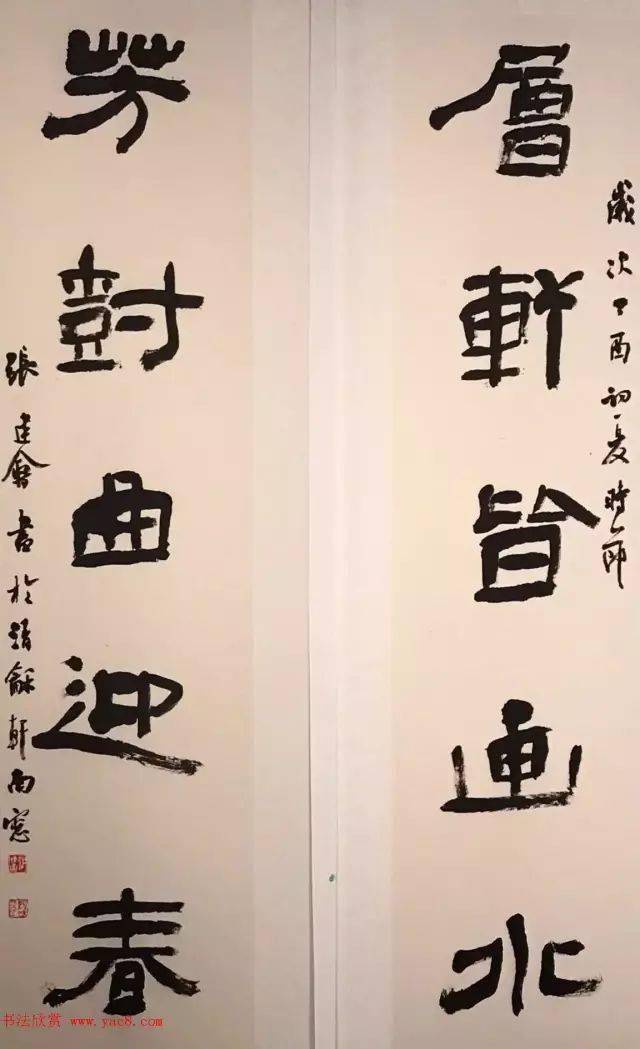 層軒皆画水
歲次丁酉初夏時節
芳樹曲迎春
張建會書於龢軒南窻
书法欣赏 www.yac8.com